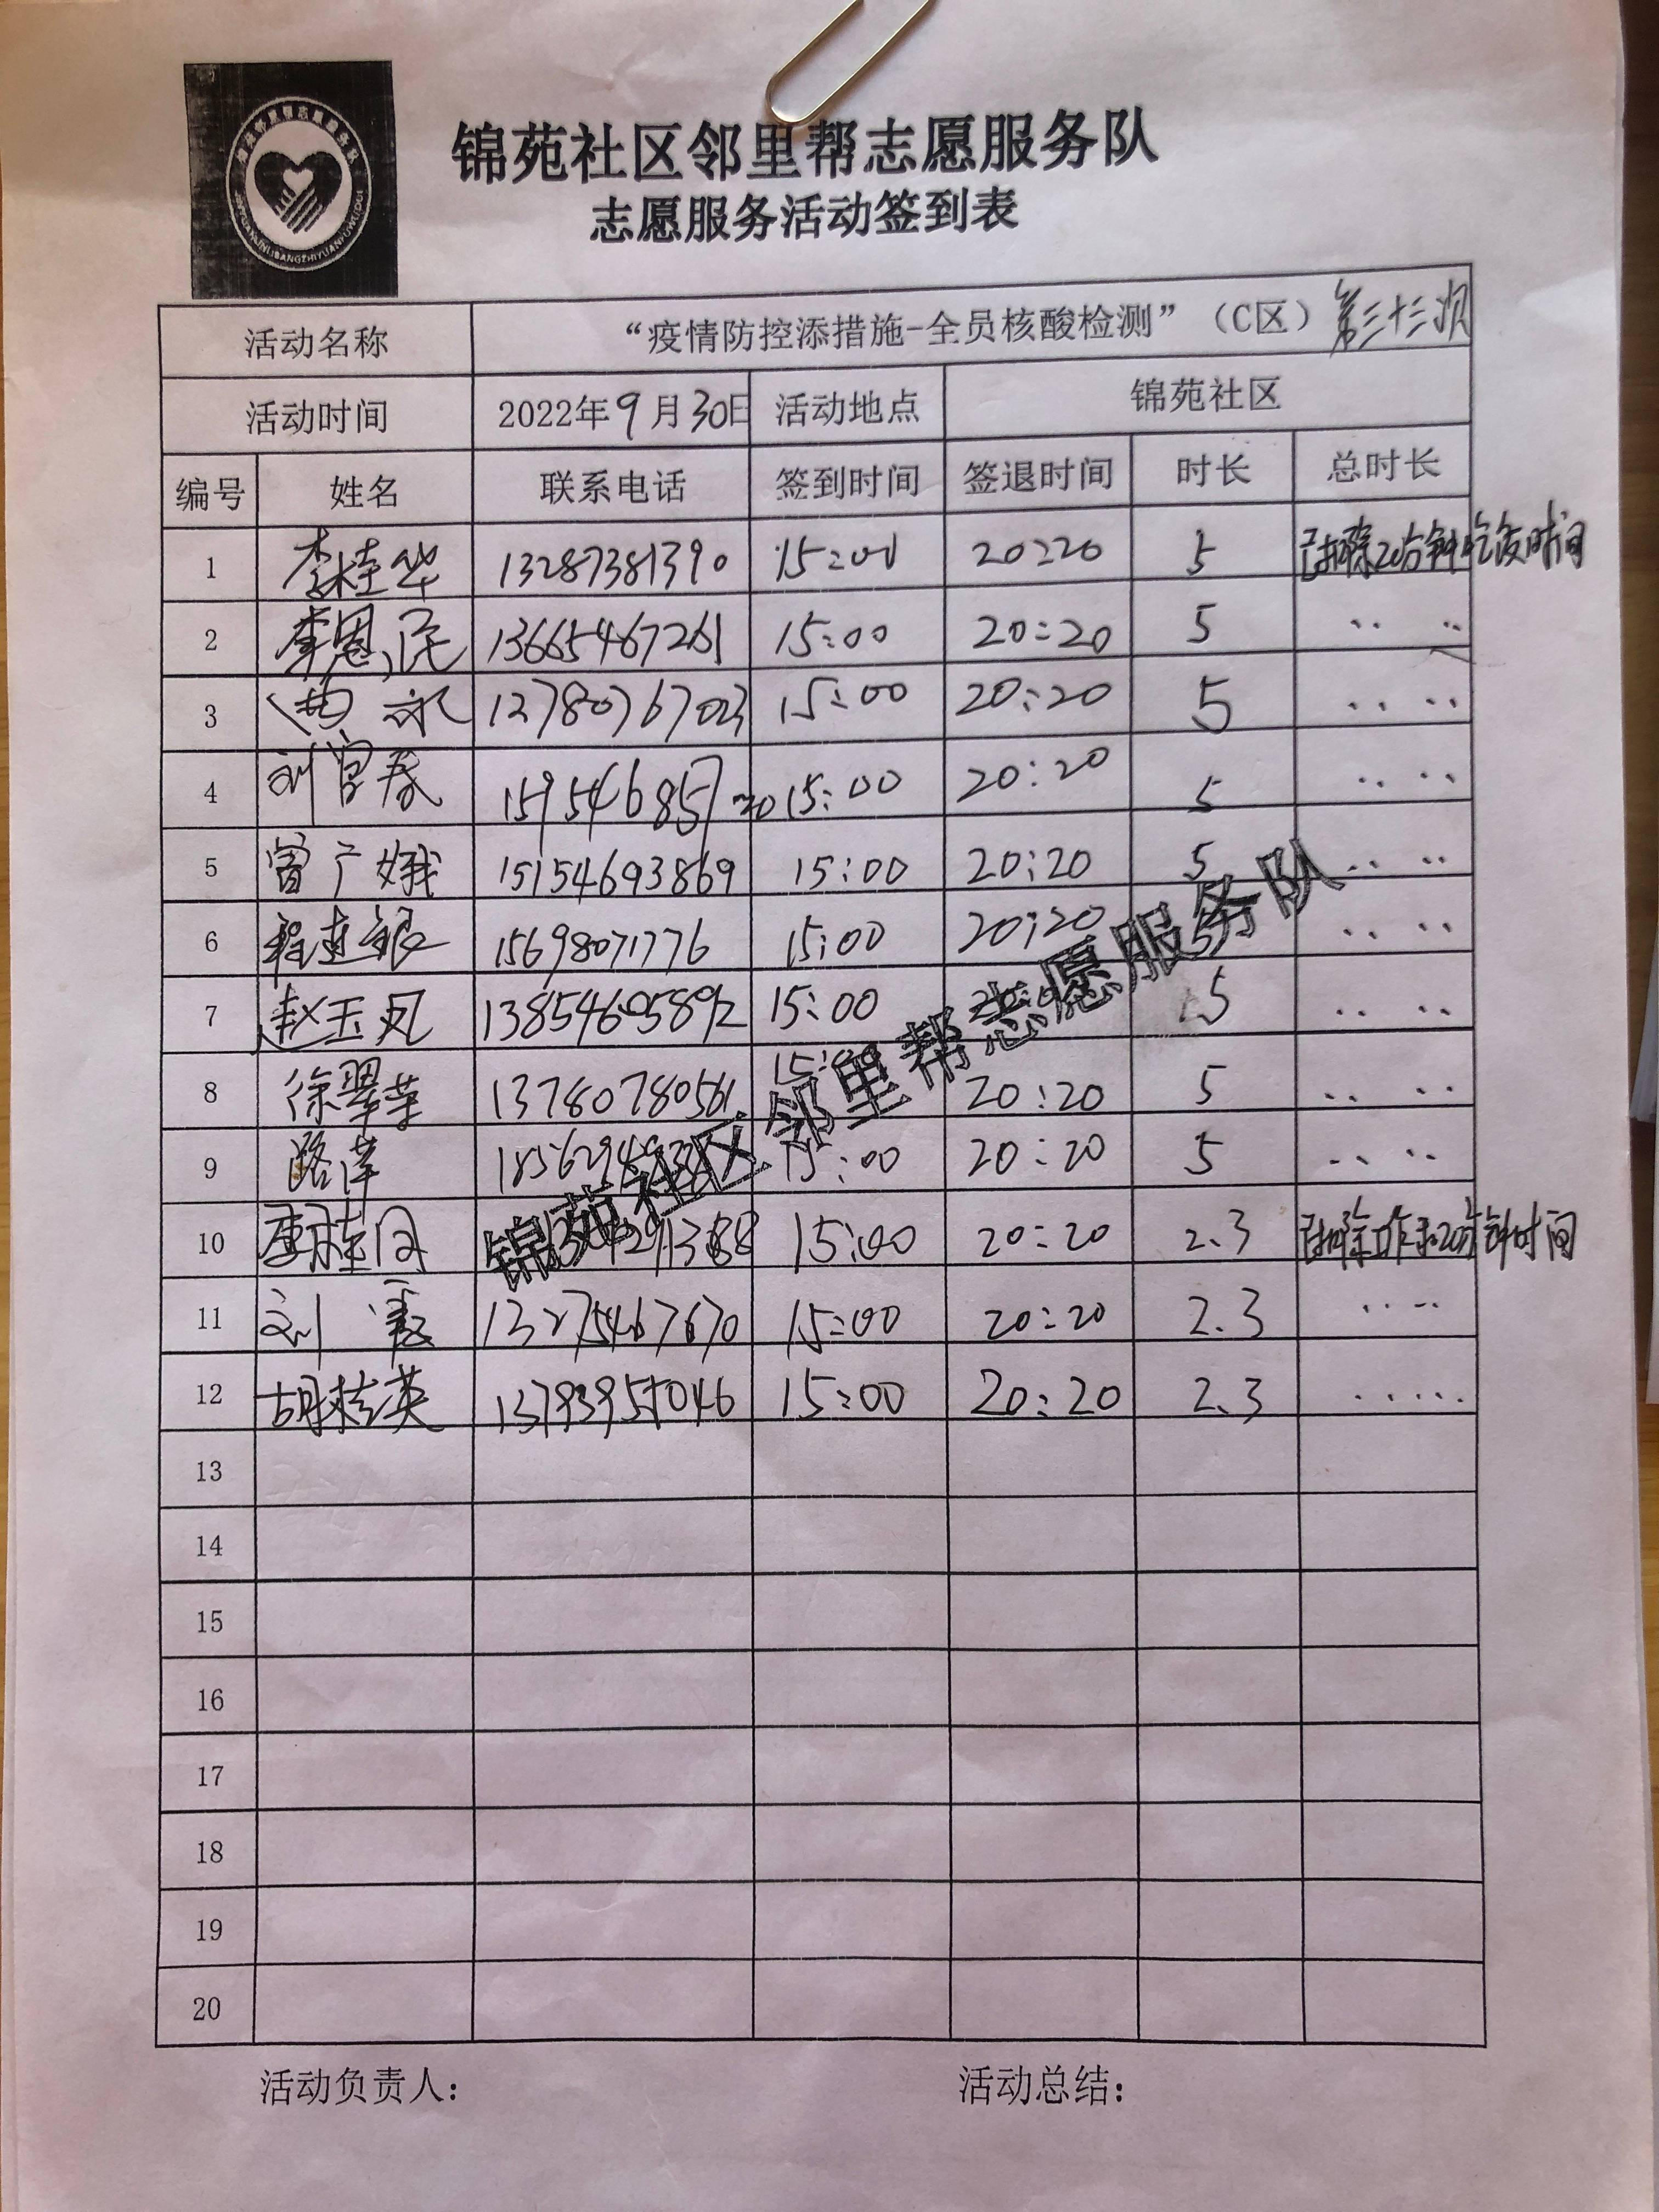 锦苑社区邻里帮志愿服务队
志愿服务活动签到表
活动名称 “疫情防控添措施-全员核酸检测”（C区）第三十三次
活动时间 2022年9月30日 活动地点 锦苑社区
编号 姓名 联系电话 签到时间 签退时间 时长 总时长
1 李桂华 13287381390 15:00 20:20 5 已扣除20分钟吃饭时间
2 李恩民 13665467261 15:00 20:20 5
3 15:00 20:20 5
4 刘官春 15:00 20:20 5
5 曾广娥 15154693869 15:00 20:20 5
6 程连银 15698071776 15:00 20:20 5
7 赵玉凤 13854605892 15:00 5
8 徐翠荣 13780780561 15:00 20:20 5
9 路萍 15:00 20:20 5
10 15:00 20:20 2.3 已扣除工作和20分钟时间
11 刘霞 13275467670 15:00 20:20 2.3
12 胡桂英 15:00 20:20 2.3
13
14
15
16
17
18
19
20
锦苑社区邻里帮志愿服务队
活动负责人： 活动总结：